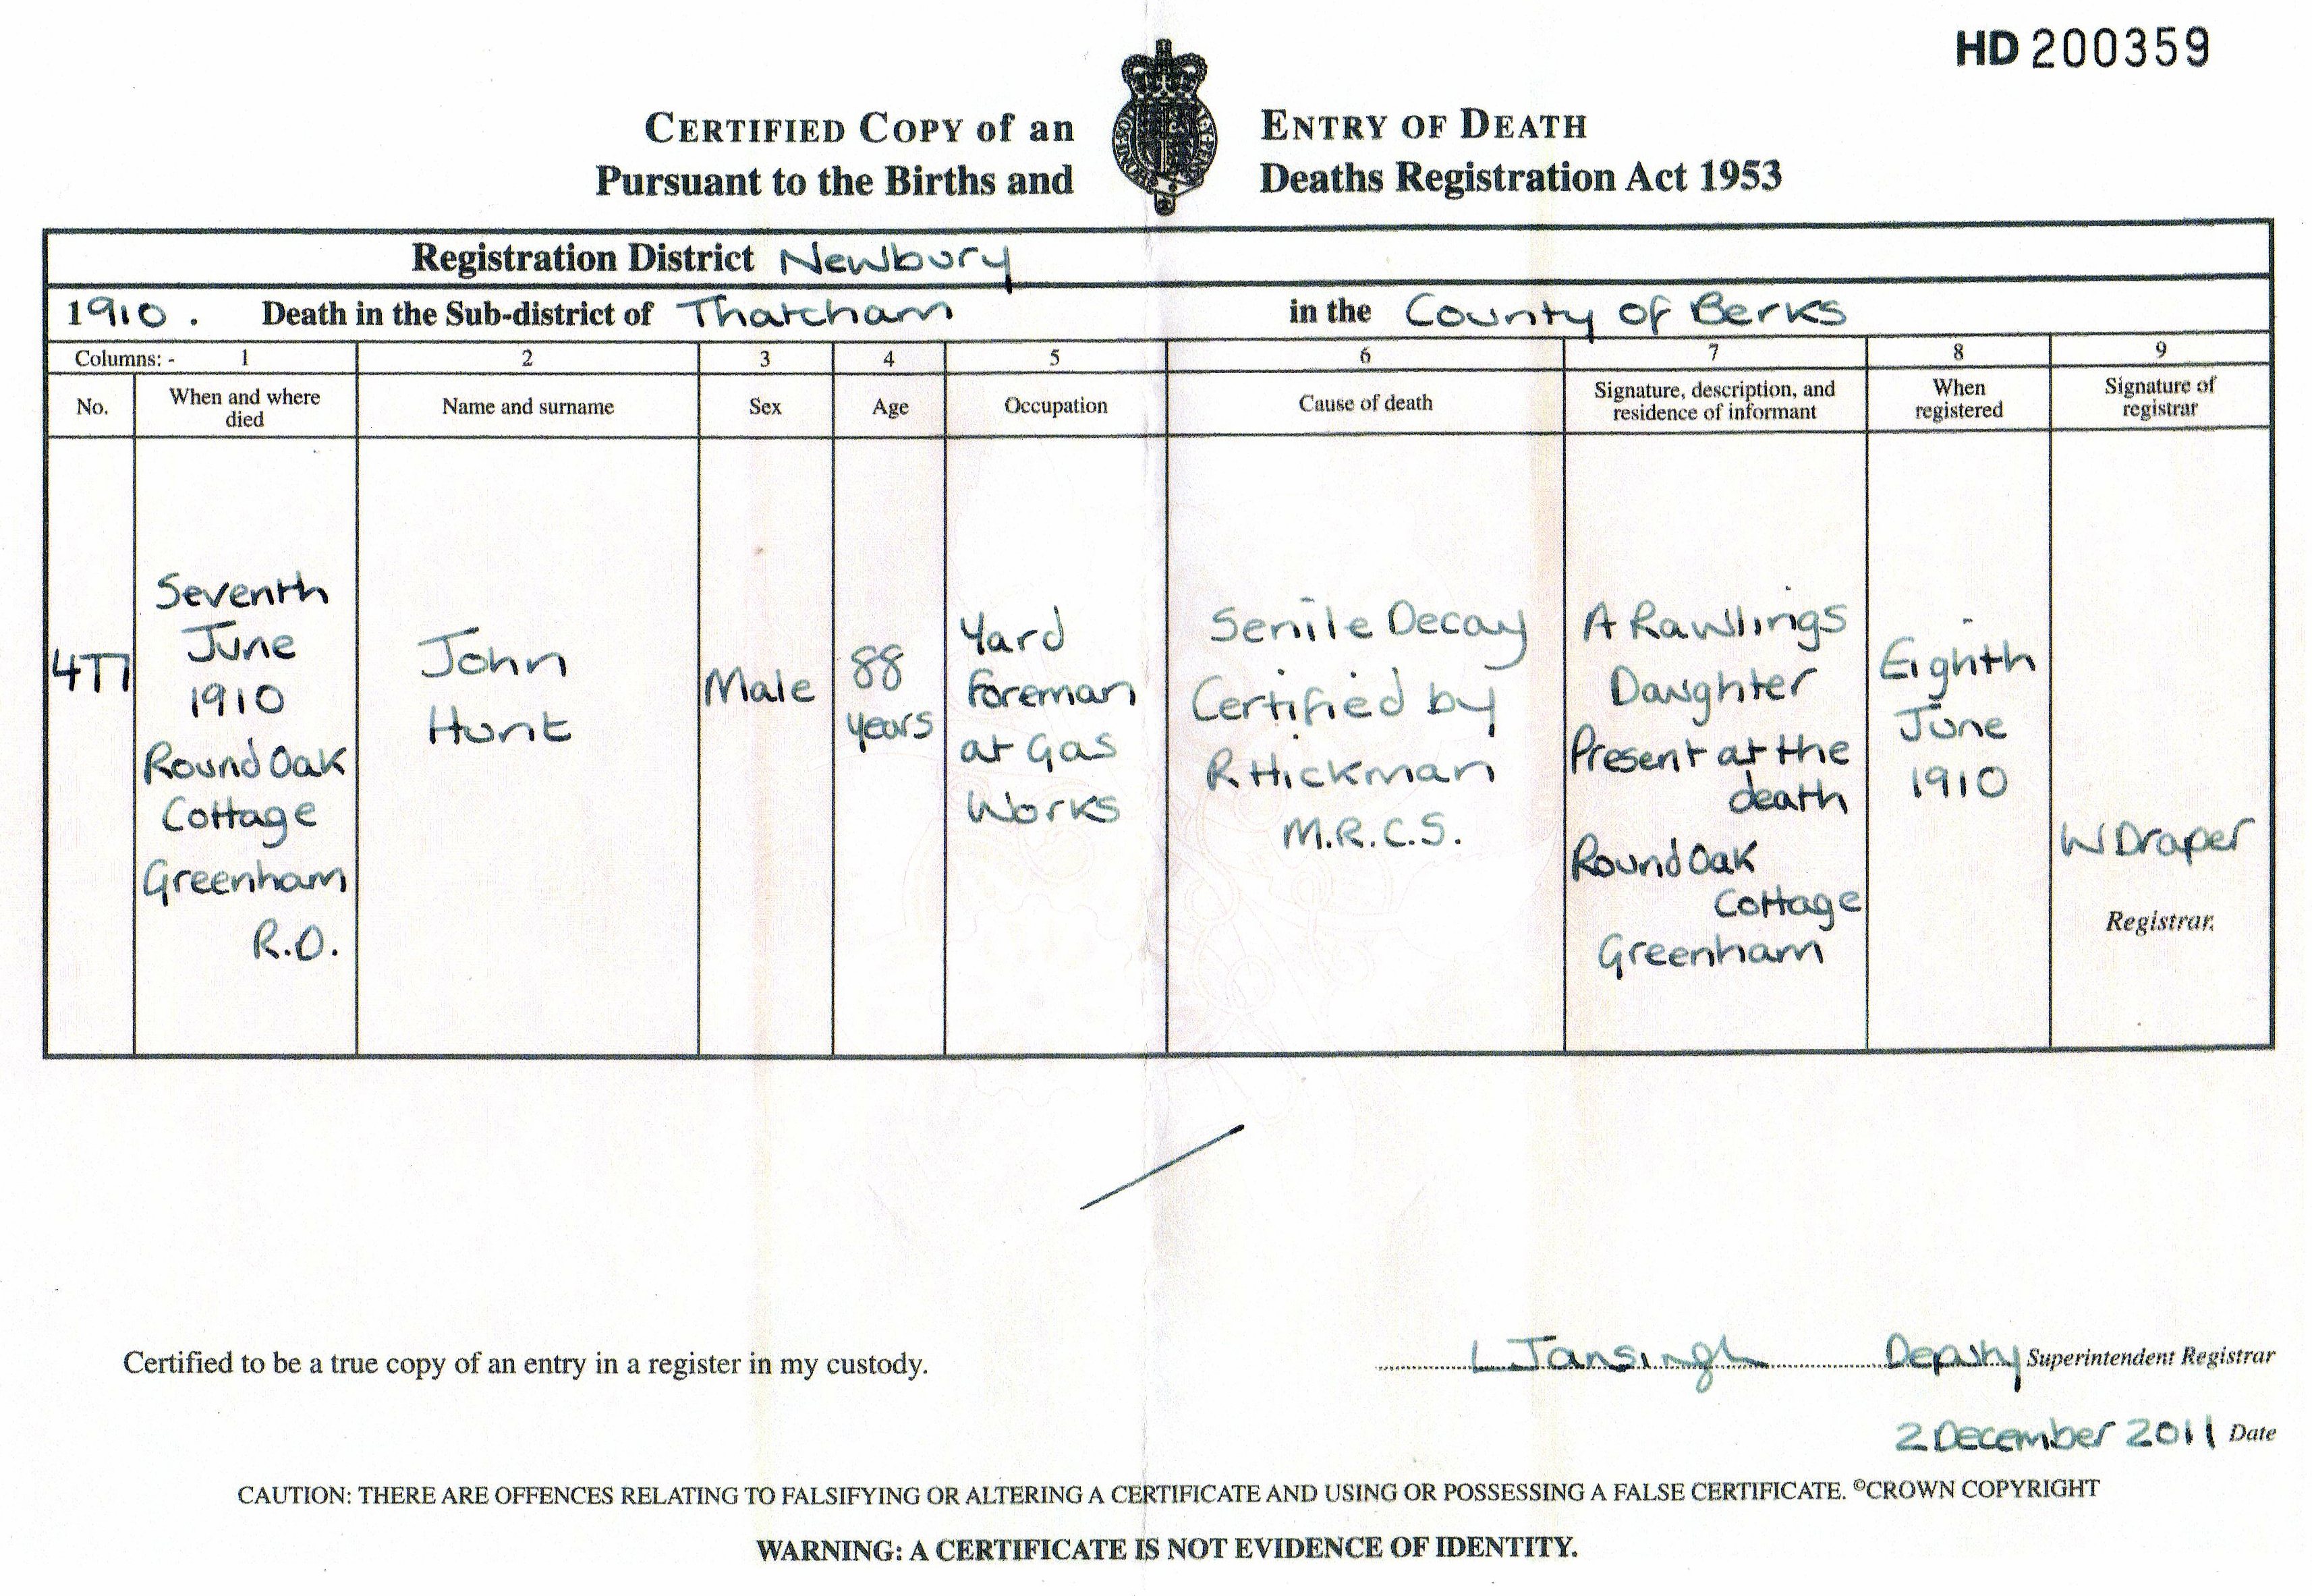 HD 200359
CERTIFIED COPY of an ENTRY OF DEATH
Pursuant to the Births and Deaths Registration Act 1953
Registration District Newbury
1910. Death in the Sub-district of Thatcham in the County of Berks
Columns: - 1 2 3 4 5 6 7 8 9
No.
When and where
died
Name and surname
Sex
Age
Occupation
Cause of death
Signature, description, and
residence of informant
When
registered
Signature of
registrar
Seventh
June
1910
Round Oak
Cottage
Greenham
R.D.
John
Hunt
Male
88
years
Yard
Foreman
at Gas
Works
Senile Decay
Certified by
R Hickman
M.R.C.S.
A Rawlings
Daughter
Present at the
death
Round Oak
Cottage
Greenham
Eighth
June
1910
W Draper
Registrar.
Certified to be a true copy of an entry in a register in my custody.
L Jansingh Deputy Superintendent Registrar
2 December 2011 Date
CAUTION: THERE ARE OFFENCES RELATING TO FALSIFYING OR ALTERING A CERTIFICATE AND USING OR POSSESSING A FALSE CERTIFICATE. ©CROWN COPYRIGHT
WARNING: A CERTIFICATE IS NOT EVIDENCE OF IDENTITY.